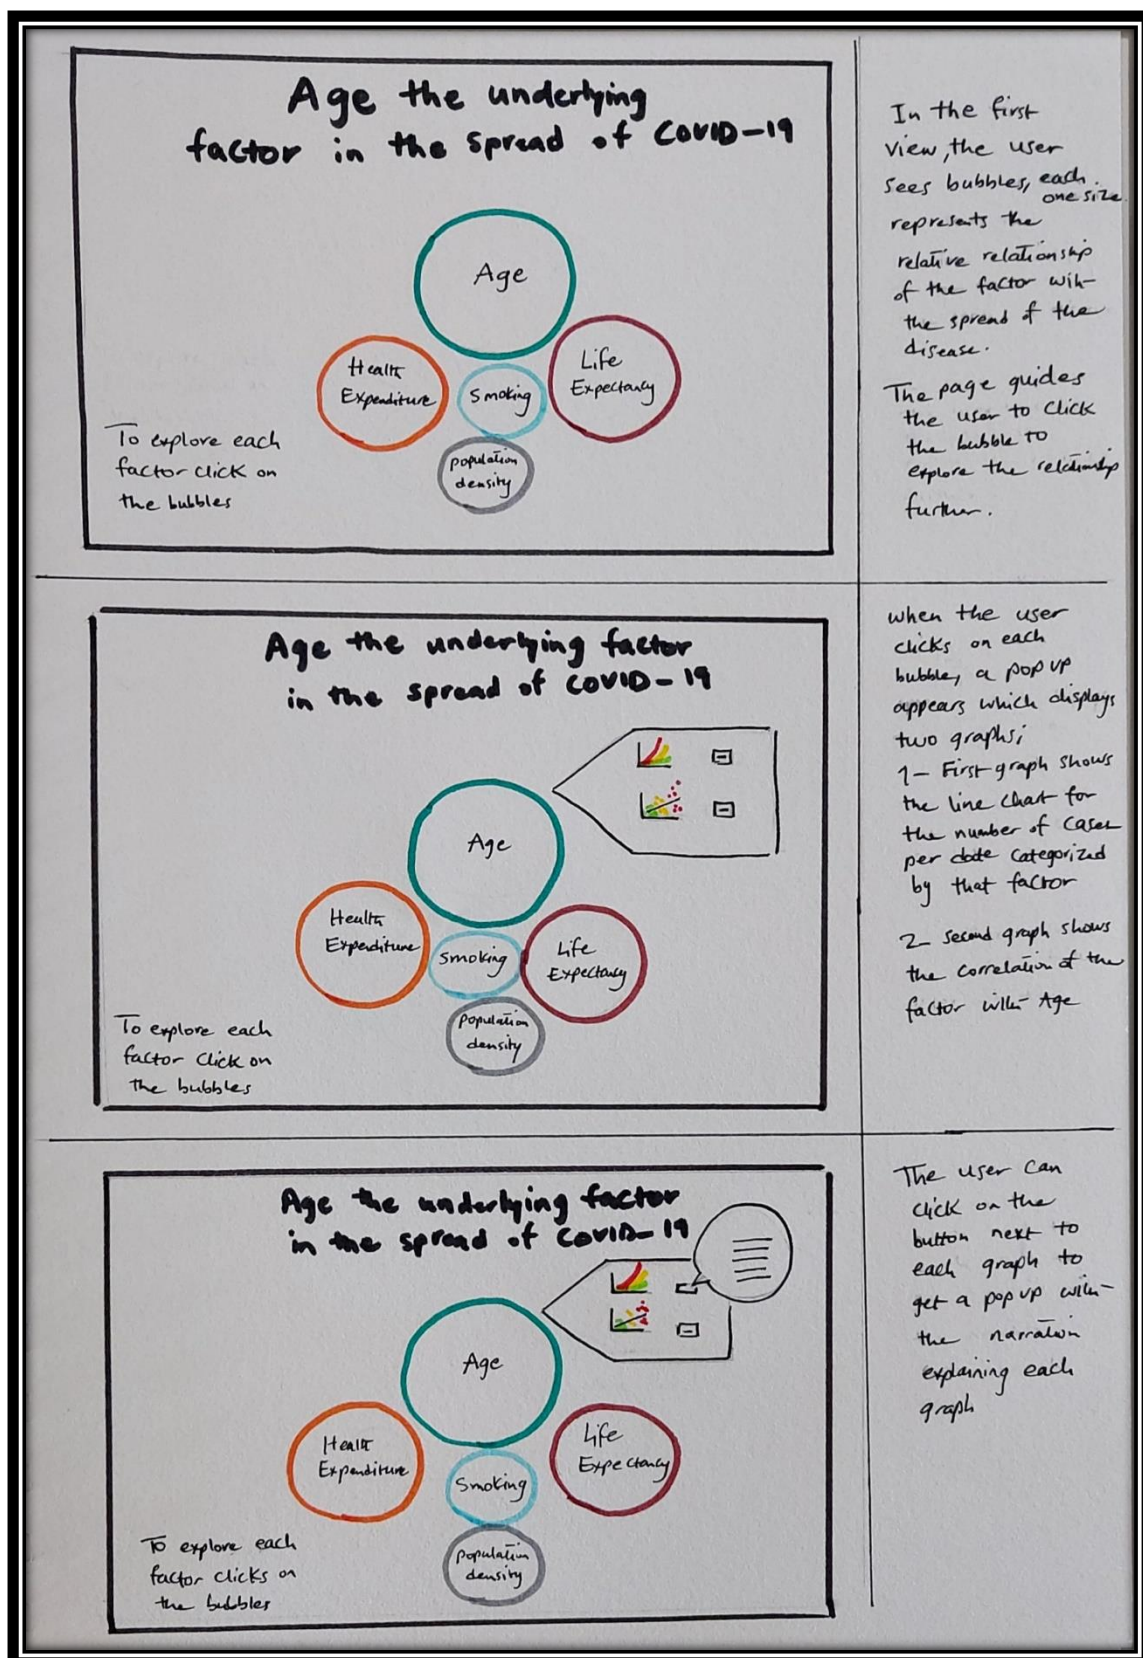 Age the underlying
factor in the spread of COVID-19
Age
Health
Expenditure
Smoking
Life
Expectancy
population
density
To explore each
factor click on
the bubbles
In the first
view, the user
sees bubbles, each
one size
represents the
relative relationship
of the factor with
the spread of the
disease.
The page guides
the user to click
the bubble to
explore the relationship
further.
Age the underlying factor
in the spread of COVID-19
Age
Health
Expenditure
Smoking
Life
Expectancy
population
density
To explore each
factor click on
the bubbles
when the user
clicks on each
bubble, a pop up
appears which displays
two graphs;
1- First graph shows
the line chart for
the number of cases
per date categorized
by that factor
2- second graph shows
the correlation of the
factor with Age
Age the underlying factor
in the spread of COVID-19
Age
Health
Expenditure
Smoking
Life
Expectancy
population
density
To explore each
factor clicks on
the bubbles
The user can
click on the
button next to
each graph to
get a pop up with
the narration
explaining each
graph